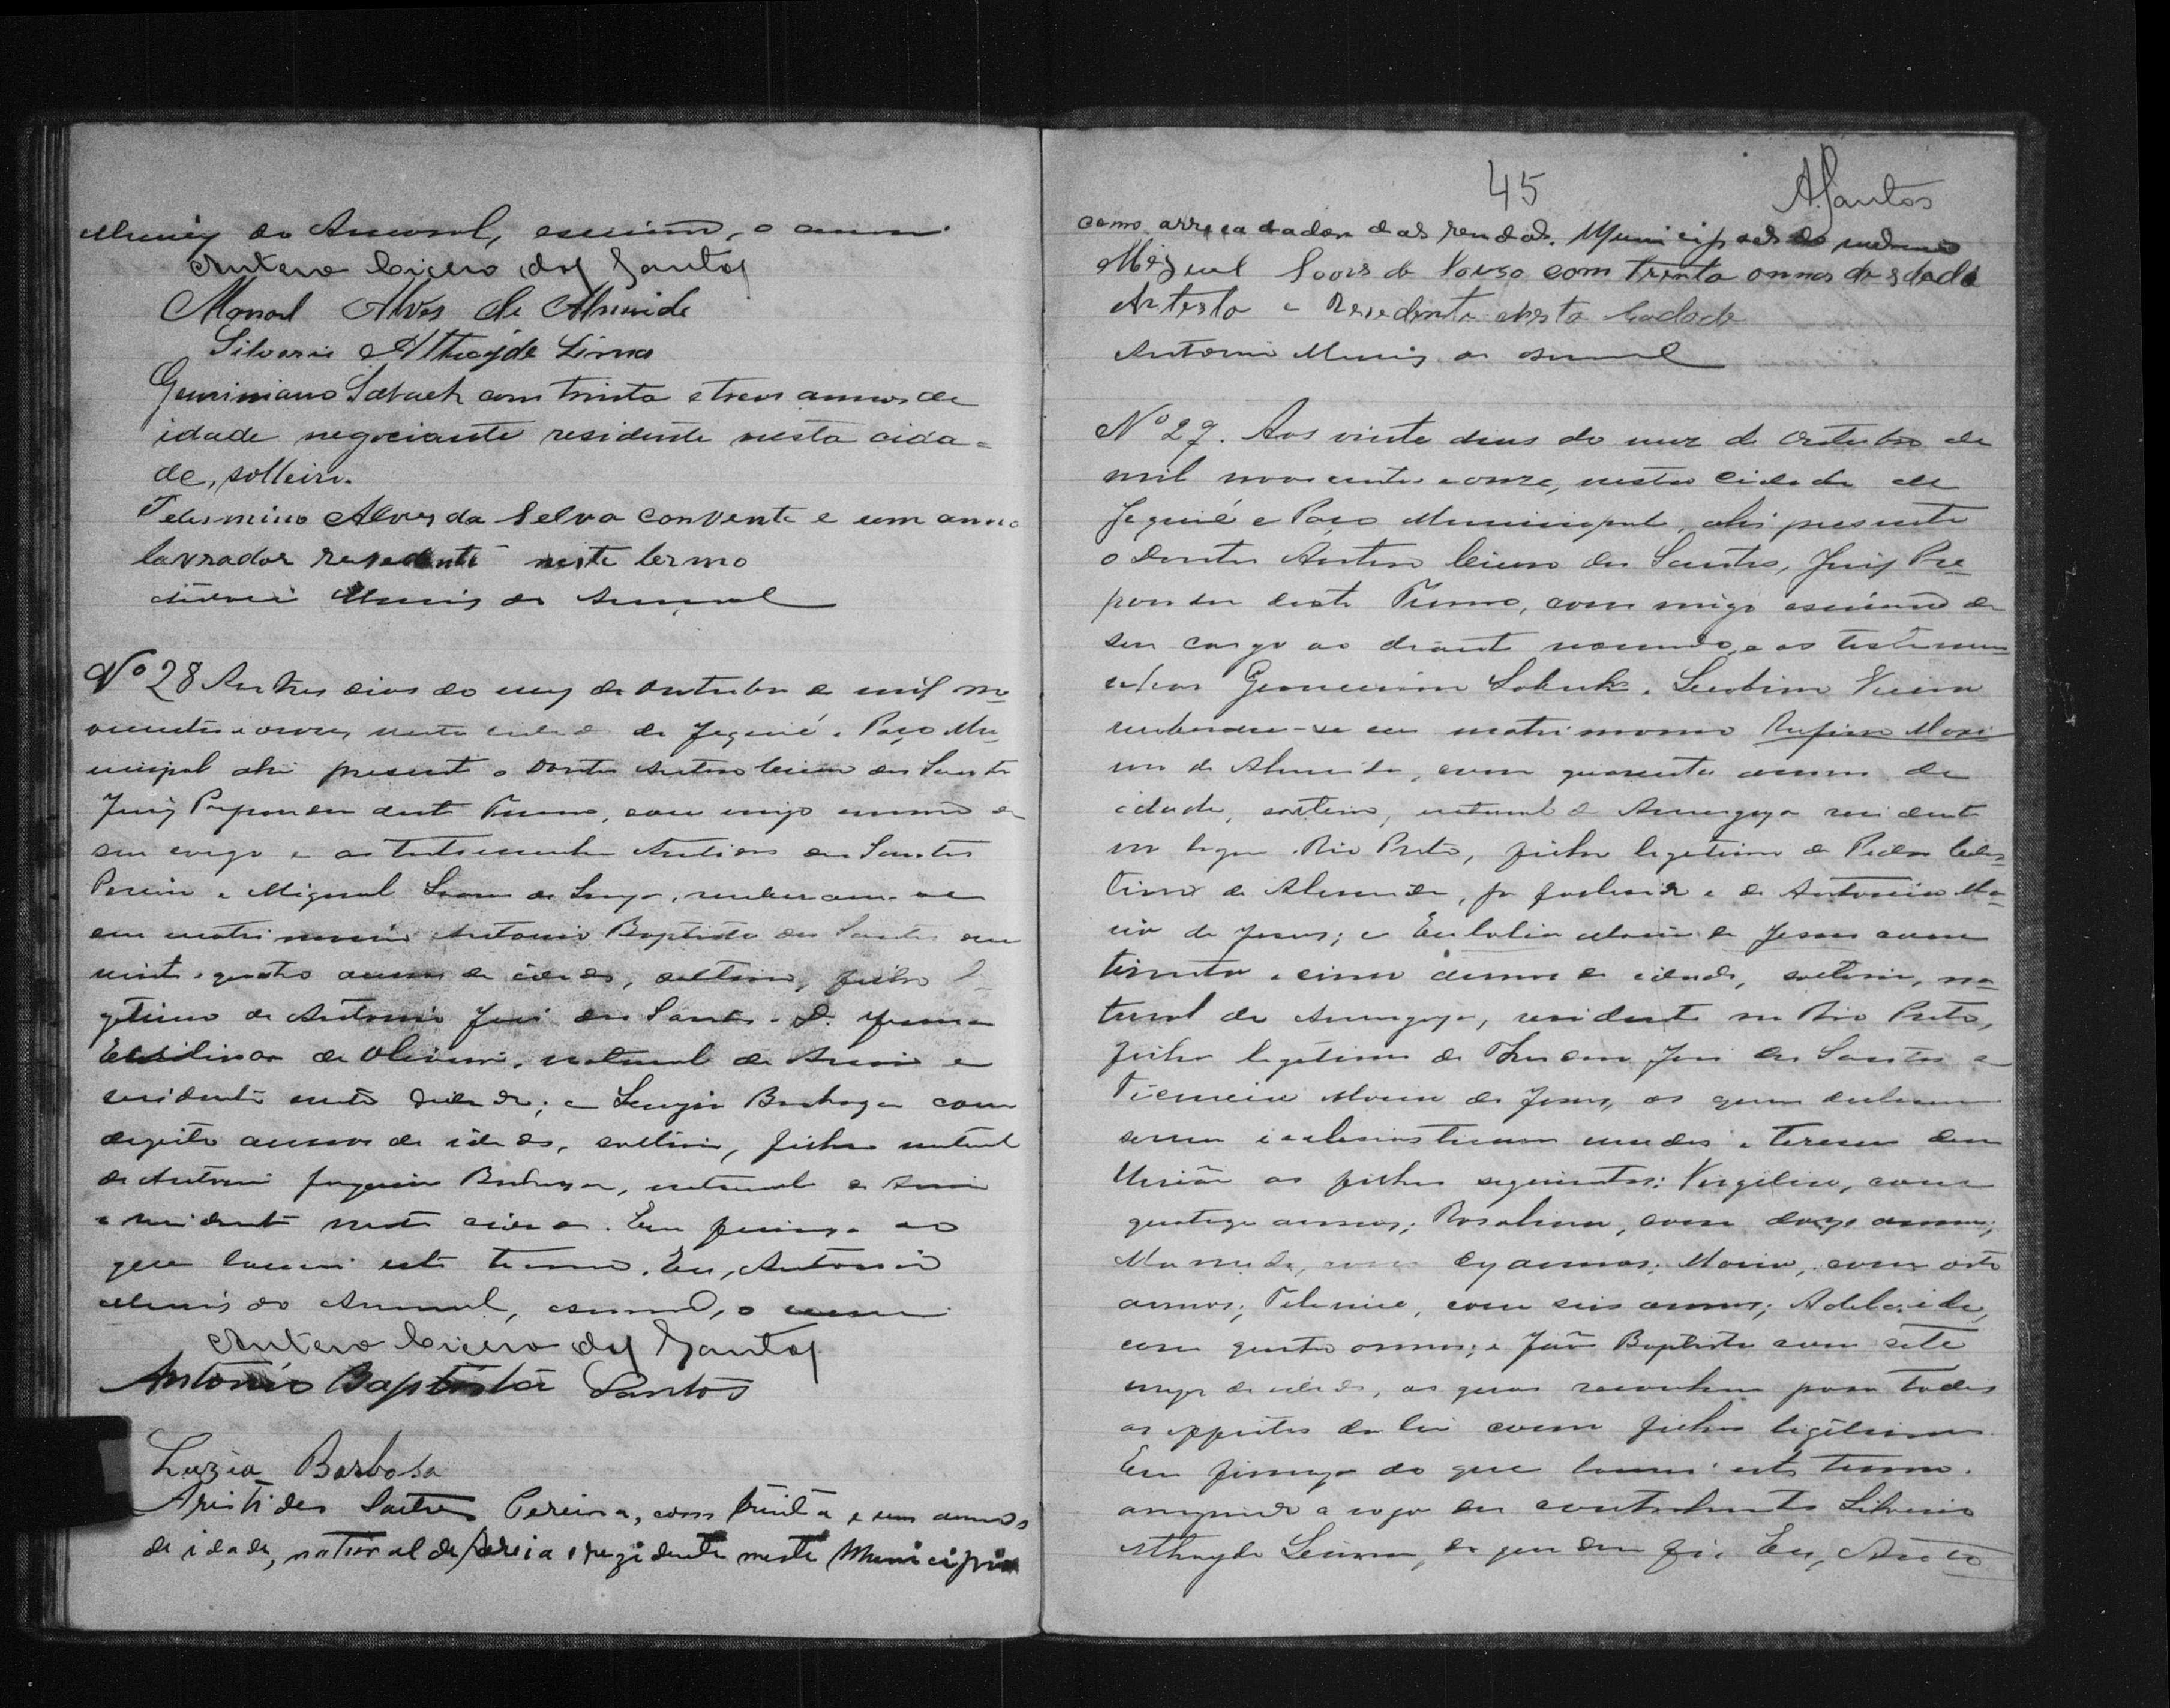 Muniz do Amaral, escrivão, o
Antero Cicero dos Santos
Manoel Alves de Almeida
Silverio Athayde Lima
Geminiano Saback com trinta e treis annos de
idade negociante residente nesta cida=
de, solteiro.
Felismino Alves da Selva e um anno
lavrador resedente neste termo
Muniz do Amaral
Nº 28 Aos tres dias do mez de outubro de mil no
vecentos e onze, nesta cidade de Jequié e Paço Mu
nicipal ahi presente o Doutor Antero Cicero dos Santos
Juiz Preparador deste Termo, com migo escrivão de
seu cargo e as testemunhas Aristides dos Santos
Pereira e Miguel Soares de Souza, receberam-se
em matrimonio Antonio Baptista dos Santos com
vinte e quatro annos de idade, solteiro, filho le
gitimo de Antonio José dos Santos e D.
de Oliveira, natural de Areia e
residente nesta cidade; e Luzia Barboza com
dezoito annos de idade, solteira, filha natural
de Antonia Joaquina Barboza, natural de Areia
e residente nesta cidade. Em firmeza do
que lavrei este termo. Eu, Antonio
Muniz do Amaral, escrivão, o
Antero Cicero dos Santos
Antonio Baptista Santos
Luzia Barbosa
Aristides Santos Pereira, com trinta e um annos
de idade, natural de Areia e rezidente neste Municipio
45 ASantos
como arrecadador das rendas Municipaes do mesmo
Miguel Soares de Souza com trinta annos de edade
Artista e Resedente nesta Cadade
Antonio Muniz do Amaral
Nº 29. Aos vinte dias do mez de Outubro de
mil novecentos e onze, nesta cidade de
Jequié e Paço Municipal, ahi presente
o Doutor Antero Cicero dos Santos, Juiz Pre
parador deste Termo, com migo escrivão de
seu cargo ao diante nomeado, e as testemu
nhas Geminiano Saback e Vieira
receberam-se em matrimonio Rufino Maxi
mo de Almeida, com quarenta annos de
idade, solteiro, natural de Amargoza residente
no lugar Rio Preto, filho legitimo de Pedro Celes
tino de Almeida, ja fallecido e de Antonia Ma
ria de Jesus; e Eulalia Maria de Jesus com
trinta e cinco annos de idade, solteira, na
tural de Amargoza, residente no Rio Preto,
filha legitima de José dos Santos e
Maria de Jesus, os quaes declaram
serem ecclesiasticamente unidos e terem dessa
União os filhos seguintes: Virgilio, com
quatorze annos; Rosalina, com doze annos;
com dez annos; Maria, com oito
annos; com seis annos; Adelaide,
com quatro annos; e João Baptista com sete
mezes de idade, os quaes reconhecem para todos
os effeitos da lei como filhos legitimos.
Em firmeza do que lavrei este termo.
assignado a rogo dos contrahentes Silverio
Athayde Lima, do que dou fé. Eu, Anto